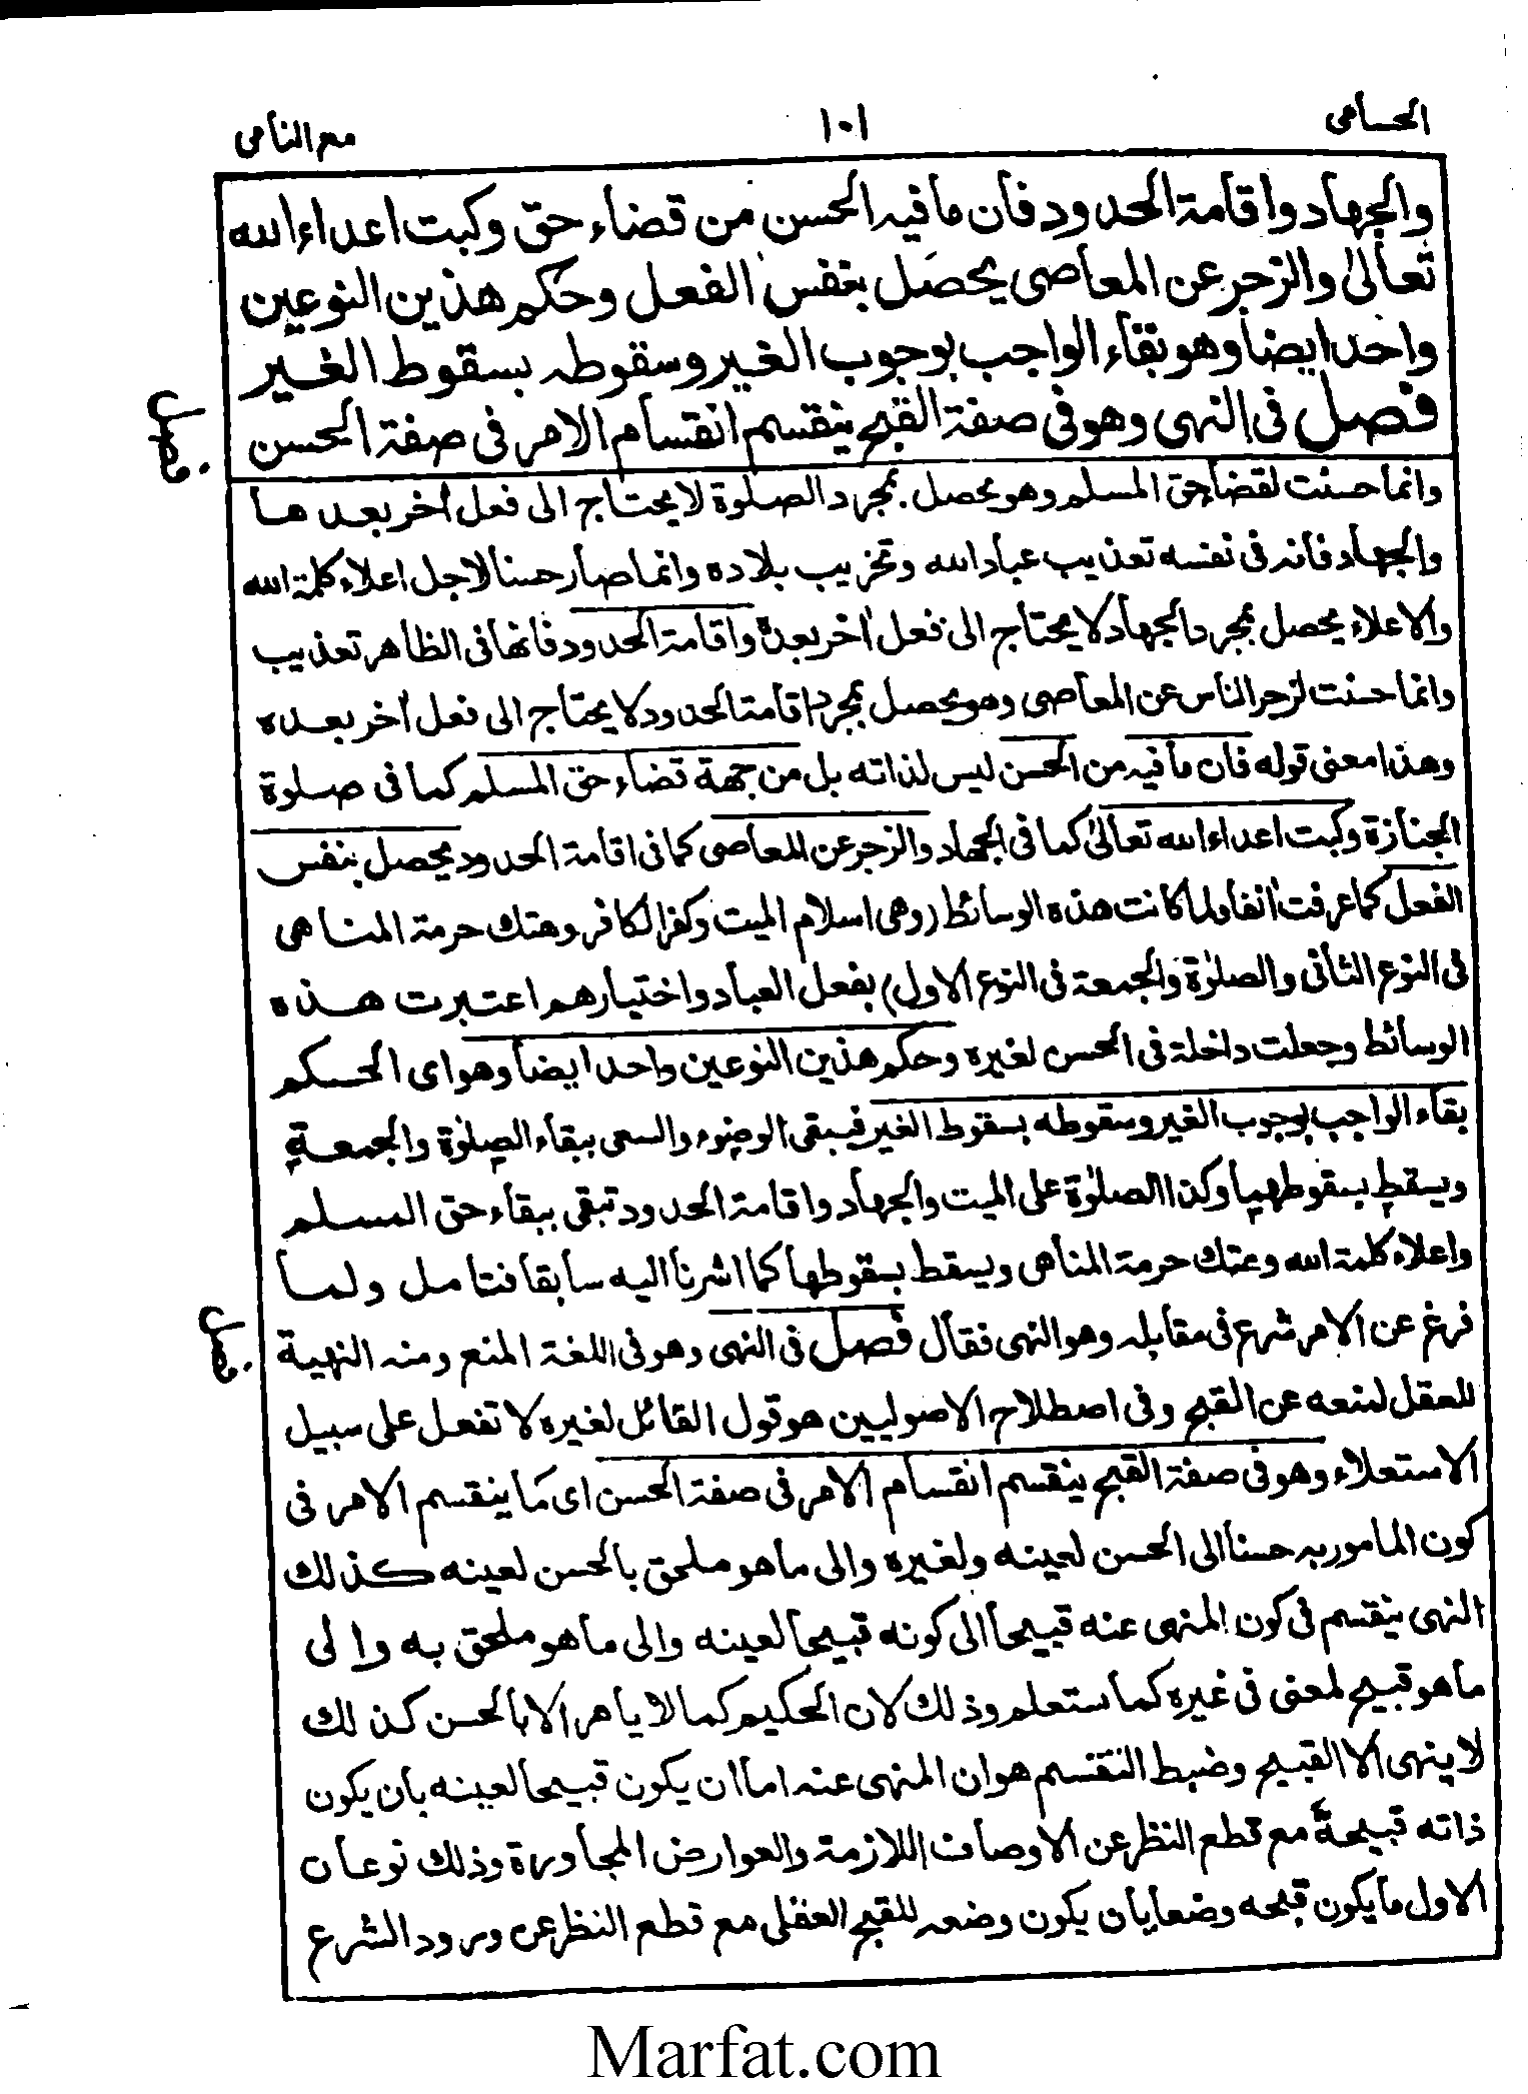 الحسامى
١٠١
مع النامى
والجهاد واقامة الحدود فان ما فيه الحسن من قضاء حق وكبت اعداء الله
تعالىٰ والزجر عن المعاصى يحصل بنفس الفعل وحكم هذين النوعين
واحد ايضا وهو بقاء الواجب بوجوب الغير وسقوطه بسقوط الغير
فصل فى النهى وهو فى صفة القبح ينقسم انقسام الامر فى صفة الحسن
فصل
وانما حسنت لقضاء حق المسلم وهو يحصل بمجرد الصلوة لا يحتاج الى فعل اٰخر بعدها
والجهاد فانه فى نفسه تعذيب عباد الله وتخريب بلاده وانما صار حسنا لاجل اعلاء كلمة الله
والاعلاء يحصل بمجرد الجهاد لا يحتاج الى فعل اٰخر بعدهٗ واقامة الحدود فانها فى الظاهر تعذيب
وانما حسنت لزجر الناس عن المعاصى وهو يحصل بمجرد اقامة الحدود لا يحتاج الى فعل اٰخر بعده
وهذا معنى قوله فان ما فيه من الحسن ليس لذاته بل من جهة قضاء حق المسلم كما فى صلوة
الجنازة وكبت اعداء الله تعالىٰ كما فى الجهاد والزجر عن المعاصى كما فى اقامة الحدود يحصل بنفس
الفعل كما عرفت اٰنفا ولما كانت هذه الوسائط (وهى اسلام الميت وكفر الكافر وهتك حرمة المناهى
فى النوع الثانى والصلوٰة والجمعة فى النوع الاول) بفعل العباد واختيارهم اعتبرت هذه
الوسائط وجعلت داخلة فى الحسن لغيره وحكم هذين النوعين واحد ايضا وهو اى الحكم
بقاء الواجب بوجوب الغير وسقوطه بسقوط الغير فيبقى الوضوء والسعى ببقاء الصلوٰة والجمعة
ويسقط بسقوطهما وكذا الصلوٰة على الميت والجهاد واقامة الحدود تبقى ببقاء حق المسلم
واعلاء كلمة الله وهتك حرمة المناهى ويسقط بسقوطها كما اشرنا اليه سابقا فتامل ولما
فرغ عن الامر شرع فى مقابله وهو النهى فقال فصل فى النهى وهو فى اللغة المنع ومنه النهية
فصل
للعقل لمنعه عن القبح وفى اصطلاح الاصوليين هو قول القائل لغيره لا تفعل على سبيل
الاستعلاء وهو فى صفة القبح ينقسم انقسام الامر فى صفة الحسن اى كما ينقسم الامر فى
كون المامور به حسنا الى الحسن لعينه ولغيره والى ما هو ملحق بالحسن لعينه كذلك
النهى ينقسم فى كون المنهى عنه قبيحا الى كونه قبيحا لعينه والى ما هو ملحق به والى
ما هو قبيح لمعنى فى غيره كما ستعلم وذلك لان الحكيم كما لا يامر الا بالحسن كذلك
لا ينهى الا القبيح وضبط التقسيم هو ان المنهى عنه اما ان يكون قبيحا لعينه بان يكون
ذاته قبيحة مع قطع النظر عن الاوصاف اللازمة والعوارض المجاورة وذلك نوعان
الاول ما يكون قبحه وضعا بان يكون وضعه للقبح العقلى مع قطع النظر عن ورود الشرع
Marfat.com